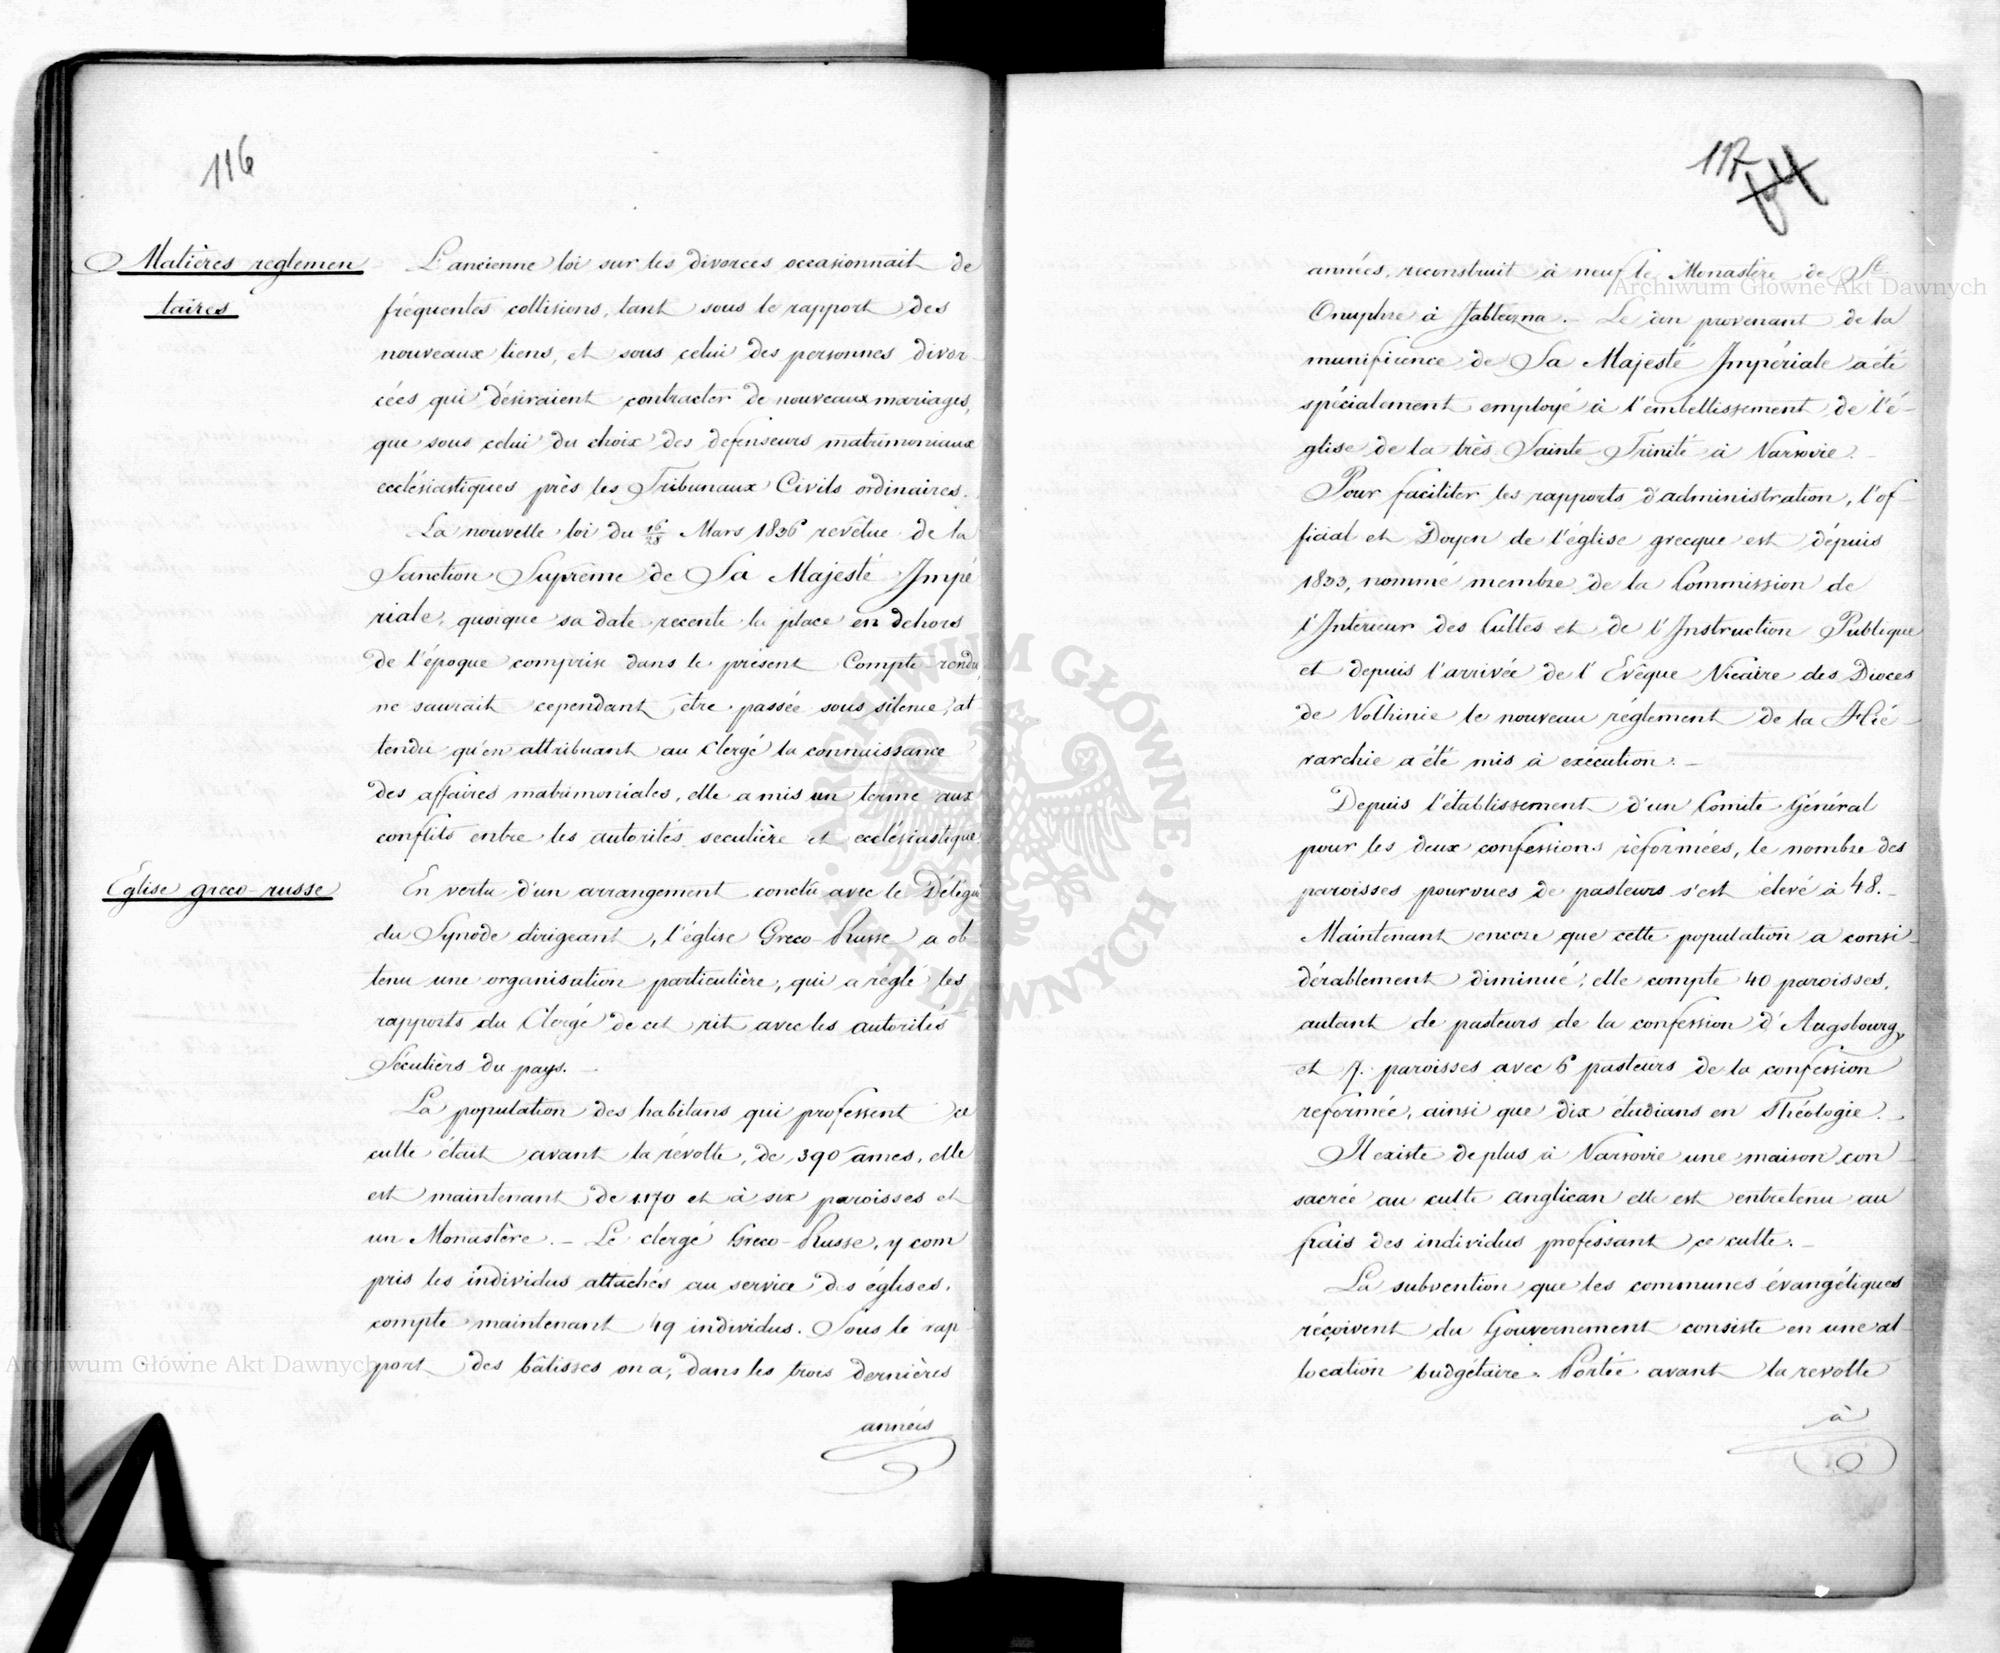 116
Matières reglemen
taires
L'ancienne loi sur les divorces occasionnait de
fréquentes collisions, tant sous le rapport des
nouveaux liens, et sous celui des personnes divor
cées qui désiraient contracter de nouveaux mariages,
que sous celui du choix des defenseurs matrimoniaux
ecclésiastiques près les Tribunaux Civils ordinaires.
La nouvelle loi du 16/28 Mars 1836 revêtue de la
Sanction Suprême de Sa Majesté Impé
riale, quoique sa date recente la place en dehors
de l'époque comprise dans le présent Compte-rendu,
ne saurait cependant être passée sous silence, at
tendu qu'en attribuant au Clergé la connaissance
des affaires matrimoniales, elle a mis un terme aux
conflits entre les autorités seculière et ecclésiastique.
Eglise greco-russe
En vertu d'un arrangement conclu avec le Délégué
du Synode dirigeant, l'église Greco-Russe a ob-
tenu une organisation particulière, qui a réglé les
rapports du Clergé de cet rit avec les autorités
Séculiers du pays. —
La population des habitans qui professent ce
culte était avant la révolte, de 390 ames, elle
est maintenant de 1170 et à six paroisses et
un Monastère. — Le clergé Greco-Russe, y com
pris les individus attachés au service des églises,
compte maintenant 49 individus. Sous le rap-
port des bâtisses on a, dans les trois dernières
années
117
années, reconstruit à neuf le Monastère de St
Onuphre à Jableczna. — Le don provenant de la
munificence de Sa Majesté Impériale a été
spécialement employé à l'embellissement de l'é-
glise de la très Sainte Trinité à Varsovie. —
Pour faciliter les rapports d'administration, l'of-
ficial et Doyen de l'église grecque est dépuis
1833, nommé membre de la Commission de
l'Interieur des Cultes et de l'Instruction Publique
et depuis l'arrivée de l'Evêque Vicaire des Dioces
de Volhinie le nouveau réglement de la Hié-
rarchie a été mis à exécution. —
Depuis l'établissement d'un Comité Général
pour les deux confessions réformées, le nombre des
paroisses pourvues de pasteurs s'est élevé à 48. —
Maintenant encore que cette population a consi-
dérablement diminué, elle compte 40 paroisses,
autant de pasteurs de la confession d'Augsbourg,
et 7. paroisses avec 6 pasteurs de la confession
reformée, ainsi que dix étudians en Théologie. —
Il existe de plus à Varsovie une maison con-
sacrée au culte anglican elle est entretenu au
frais des individus professant ce culte. —
La subvention que les communes évangéliques
réçoivent du Gouvernement consiste en une al-
location budgétaire. Portée avant la revolte
à
Archiwum Główne Akt Dawnych
Archiwum Główne Akt Dawnych
ARCHIWUM GŁÓWNE AKT DAWNYCH